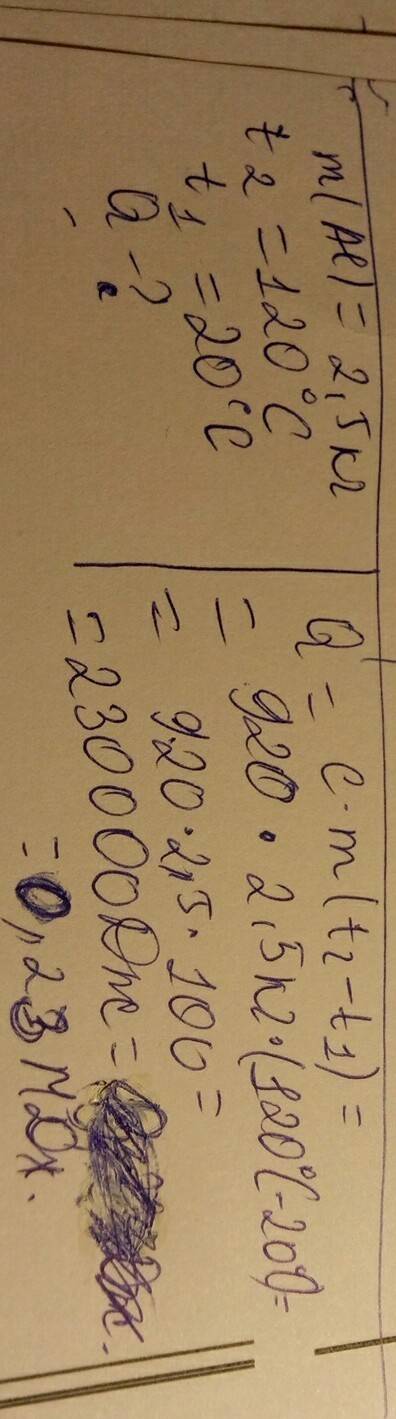 m(Al) = 2,5 кг
t2 = 120°C
t1 = 20°C
Q - ?
Q = c·m(t2-t1) =
= 920·2,5кг·(120°C-20°)=
= 920·2,5·100=
= 230000Дж =
= 0,23 МДж.